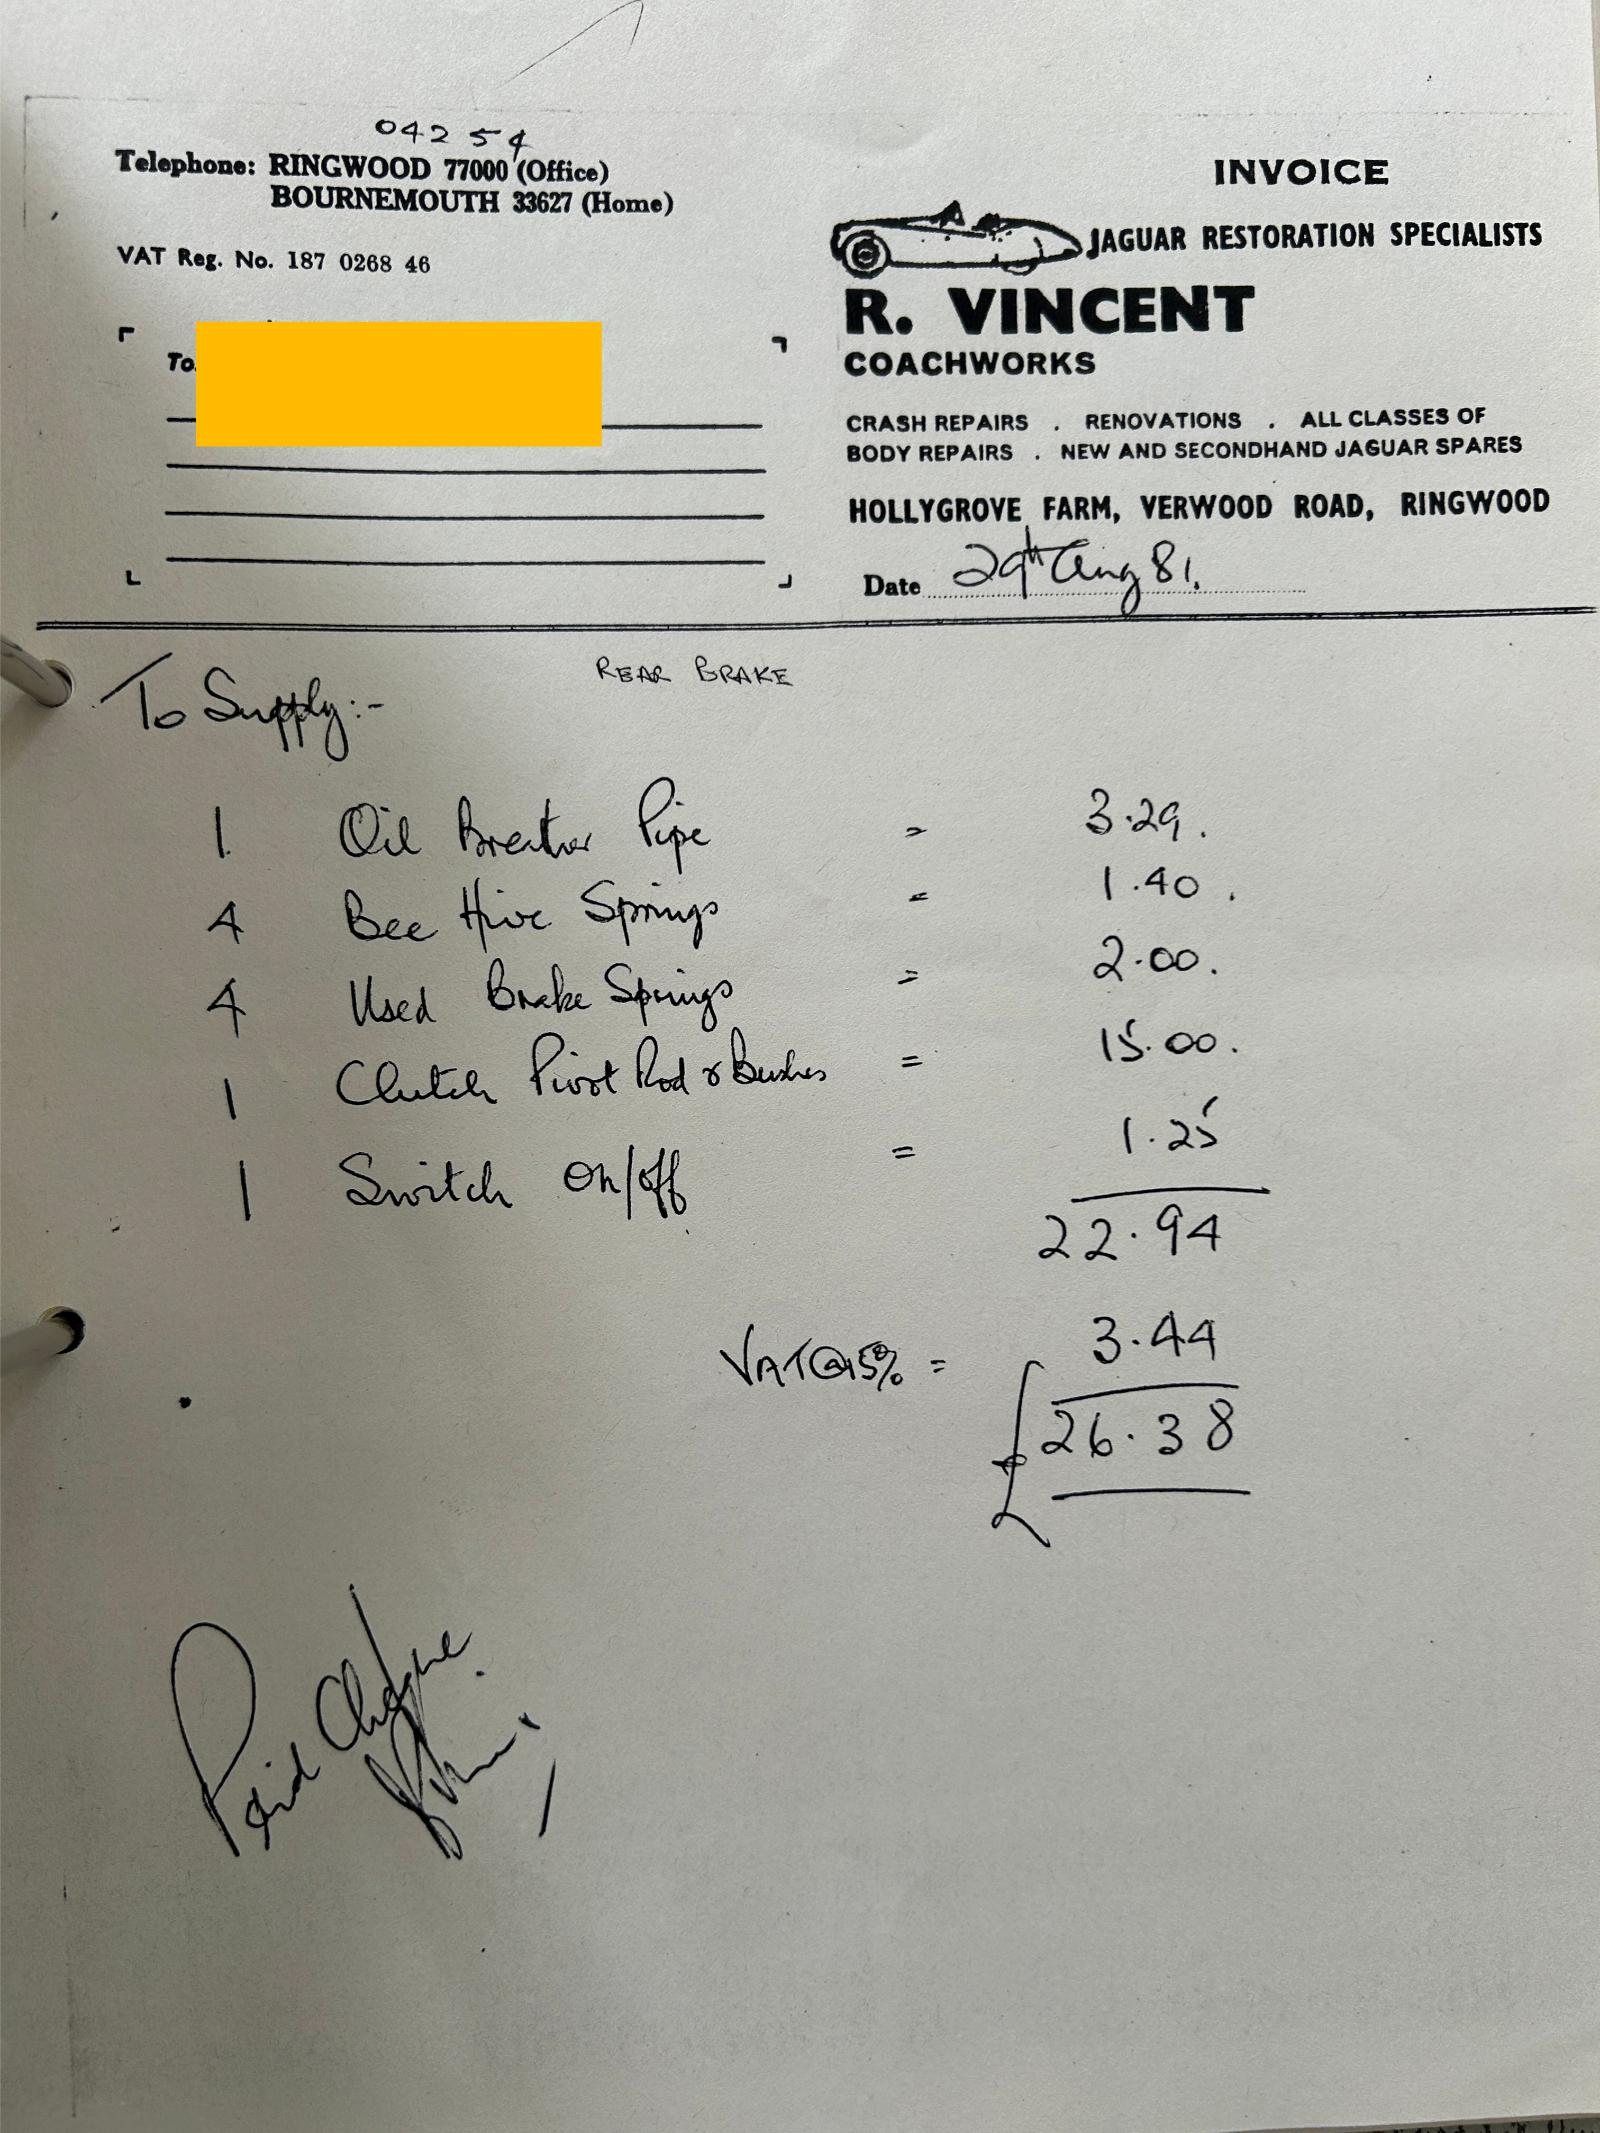 04254
Telephone: RINGWOOD 77000 (Office)
BOURNEMOUTH 33627 (Home)
VAT Reg. No. 187 0268 46
To
INVOICE
JAGUAR RESTORATION SPECIALISTS
R. VINCENT
COACHWORKS
CRASH REPAIRS . RENOVATIONS . ALL CLASSES OF
BODY REPAIRS . NEW AND SECONDHAND JAGUAR SPARES
HOLLYGROVE FARM, VERWOOD ROAD, RINGWOOD
Date 29th Aug 81.
REAR BRAKE
To Supply:-
1 Oil Breather Pipe = 3.29.
4 Bee Hive Springs = 1.40.
4 Used Brake Springs = 2.00.
1 Clutch Pivot Rod & Bushes = 15.00.
1 Switch On/off = 1.25
22.94
VAT@15% = 3.44
£26.38
Paid Cheque.